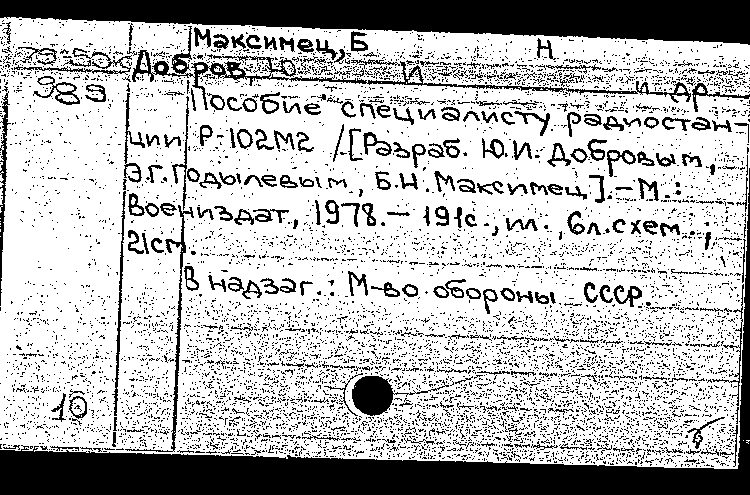 Максимец, Б Н
Добров, Ю И и др.
989
Пособие специалисту радиостан-
ции Р-102М2 /[Разраб. Ю.И. Добровым,
Э.Г. Годылевым, Б.Н. Максимец]. - М.:
Воениздат, 1978. - 191с., ил., 6л.схем.;
21см.
В надзаг.: М-во обороны СССР.
10